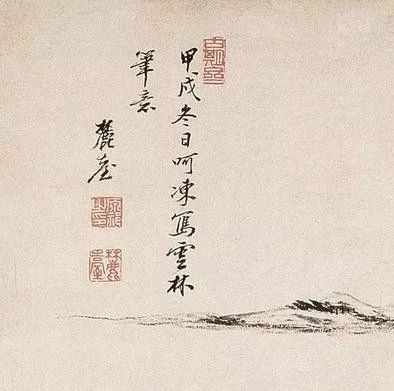 甲戌冬日呵凍寫雲林
筆意
麓臺